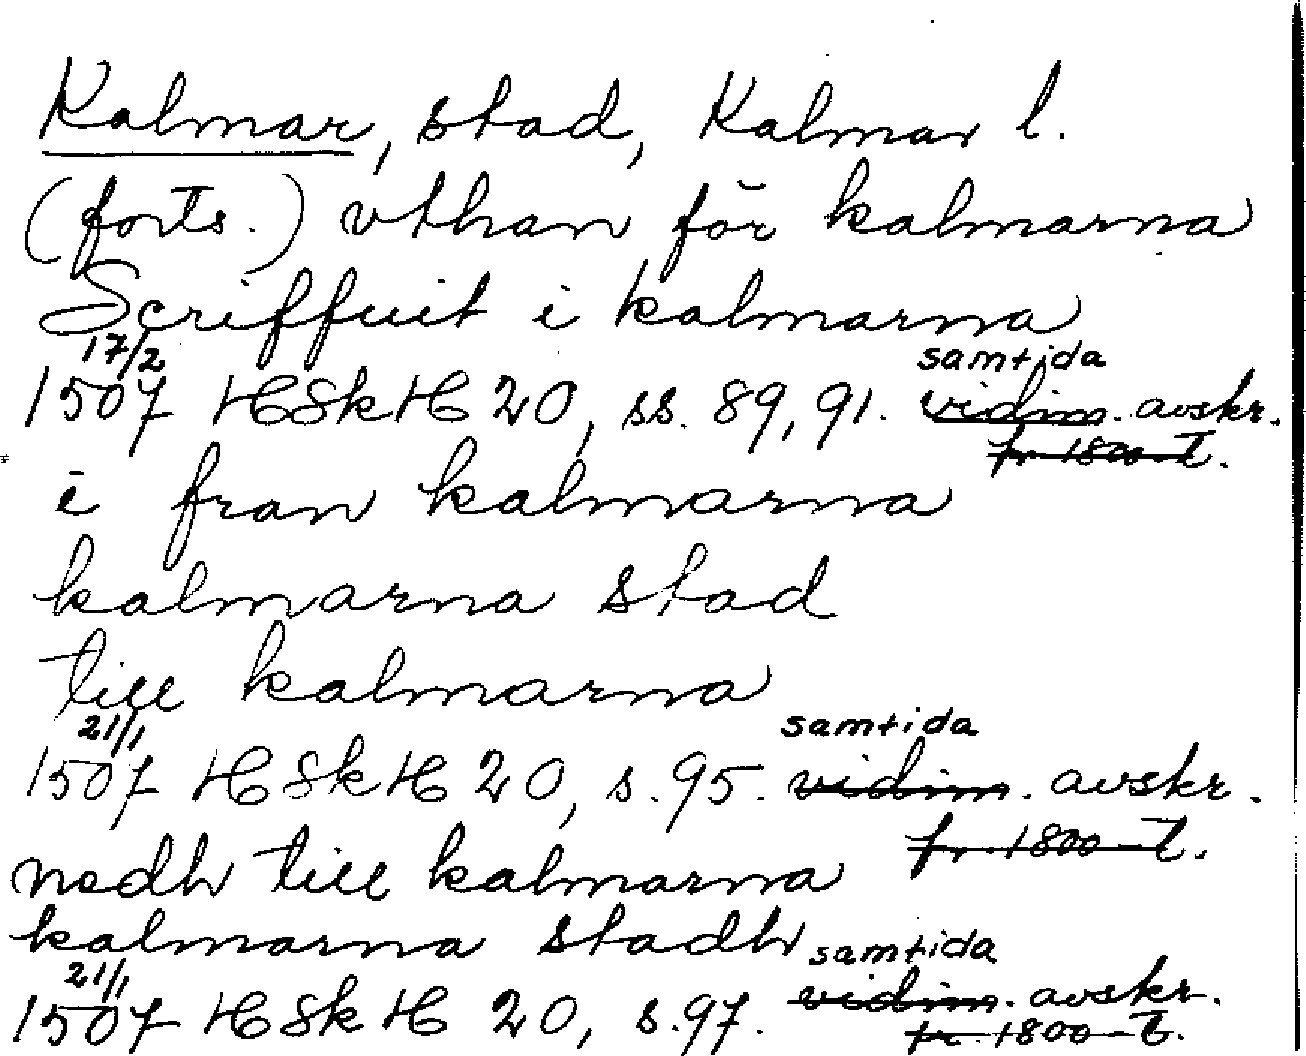 Kalmar, stad, Kalmar l.
(forts.) vthan för kalmarna
Scriffuit i kalmarna
17/2 samtida
1507 HSkH 20, ss. 89, 91. vidim. avskr.
fr. 1800-t.
i fran kalmarna
kalmarna stad
till kalmarna
21/1 samtida
1507 HSkH 20, s. 95. vidim. avskr.
fr. 1800-t.
nedh till kalmarna
kalmarna stadh
21/1 samtida
1507 HSkH 20, s. 97. vidim. avskr.
fr. 1800-t.